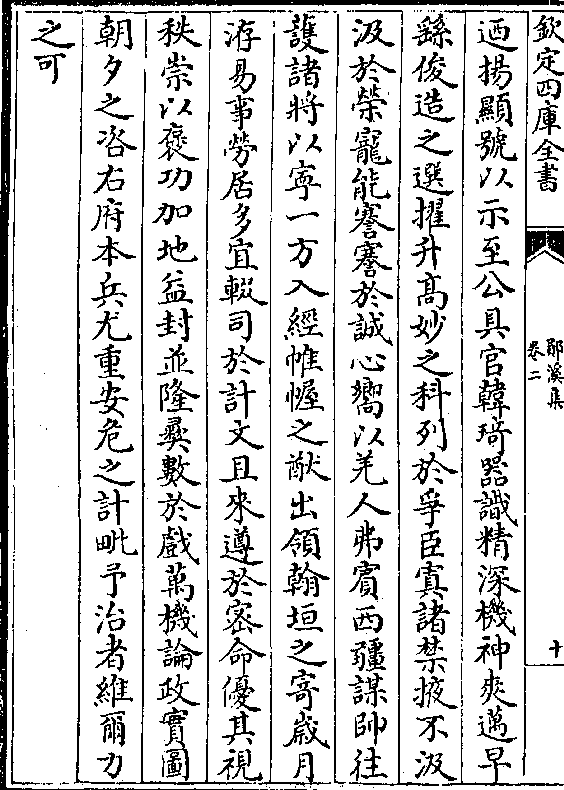 欽定四庫全書
鄖溪集
卷二
十
迺揚顯號以示至公具官韓琦器識精深機神爽邁早
繇俊造之選擢升高妙之科列於爭臣寘諸禁掖不汲
汲於榮寵能謇謇於誠心嚮以羌人弗賓西疆謀帥往
護諸將以寜一方入經帷幄之猷出領翰垣之寄歲月
洊易事勞居多宜輟司於計文且來遵於密命優其視
秩崇以襃功加地益封並隆彞數於戲萬機論政實圖
朝夕之咨右府本兵尤重安危之計毗予治者維爾力
之可